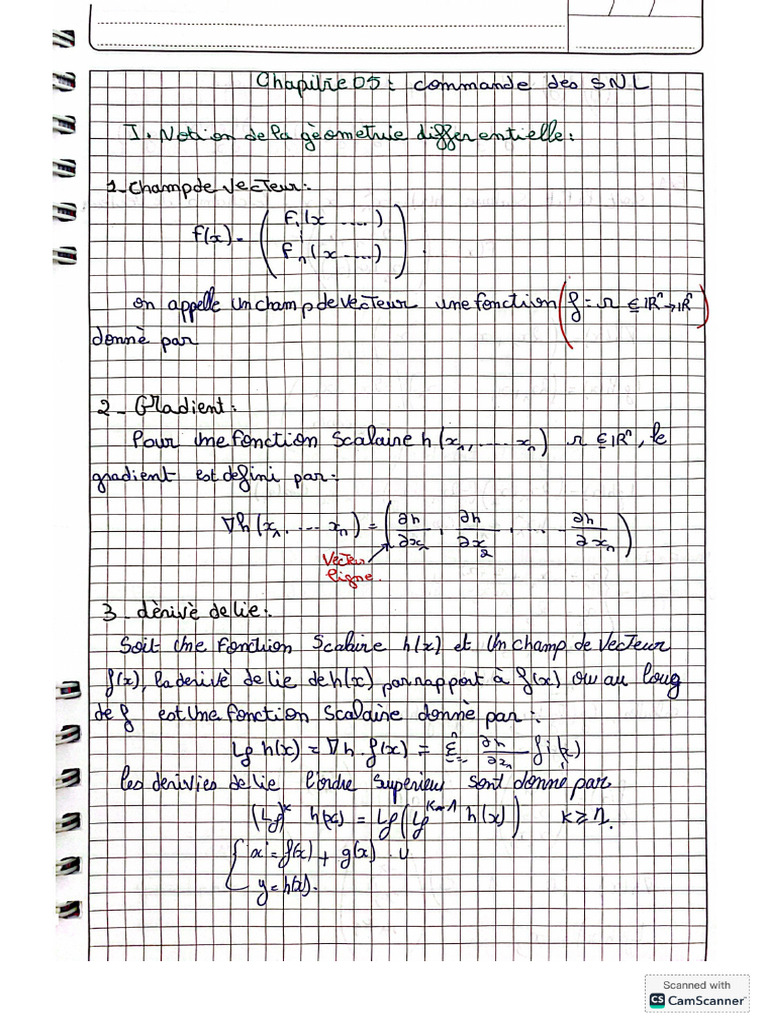 Chapitre 05: commande des SNL
I. Notion de la géometrie differentielle:
1_ champ de vecteur:
f(x) = ( f₁(x ....)
⋮
fₙ(x ....) ) .
on appelle un champ de vecteur une fonction (f = Ω ⊆ ℝⁿ → ℝⁿ)
donnè par
2_ Gradient:
Pour une fonction scalaire h(x₁, .... xₙ) Ω ⊆ ℝⁿ, le
gradient est defini par:
∇h(x₁, .... xₙ) = (∂h/∂x₁, ∂h/∂x₂, .... ∂h/∂xₙ)
Vecteur
ligne.
3_ dèrivè de lie:
Soit une fonction scalaire h(x) et un champ de vecteur
f(x), la derivè de lie de h(x) par rapport à f(x) ou au long
de f est une fonction scalaire donnè par:
Lf h(x) = ∇h . f(x) = Σ ∂h/∂xₙ fi(x)
les derivies de lie l'ordre superieur sont donnè par
(Lf)ᵏ h(x) = Lf(Lfᵏ⁻¹ h(x)) k ⩾ 1.
{ x = f(x) + g(x) . u
y = h(x).
Scanned with
CS CamScanner